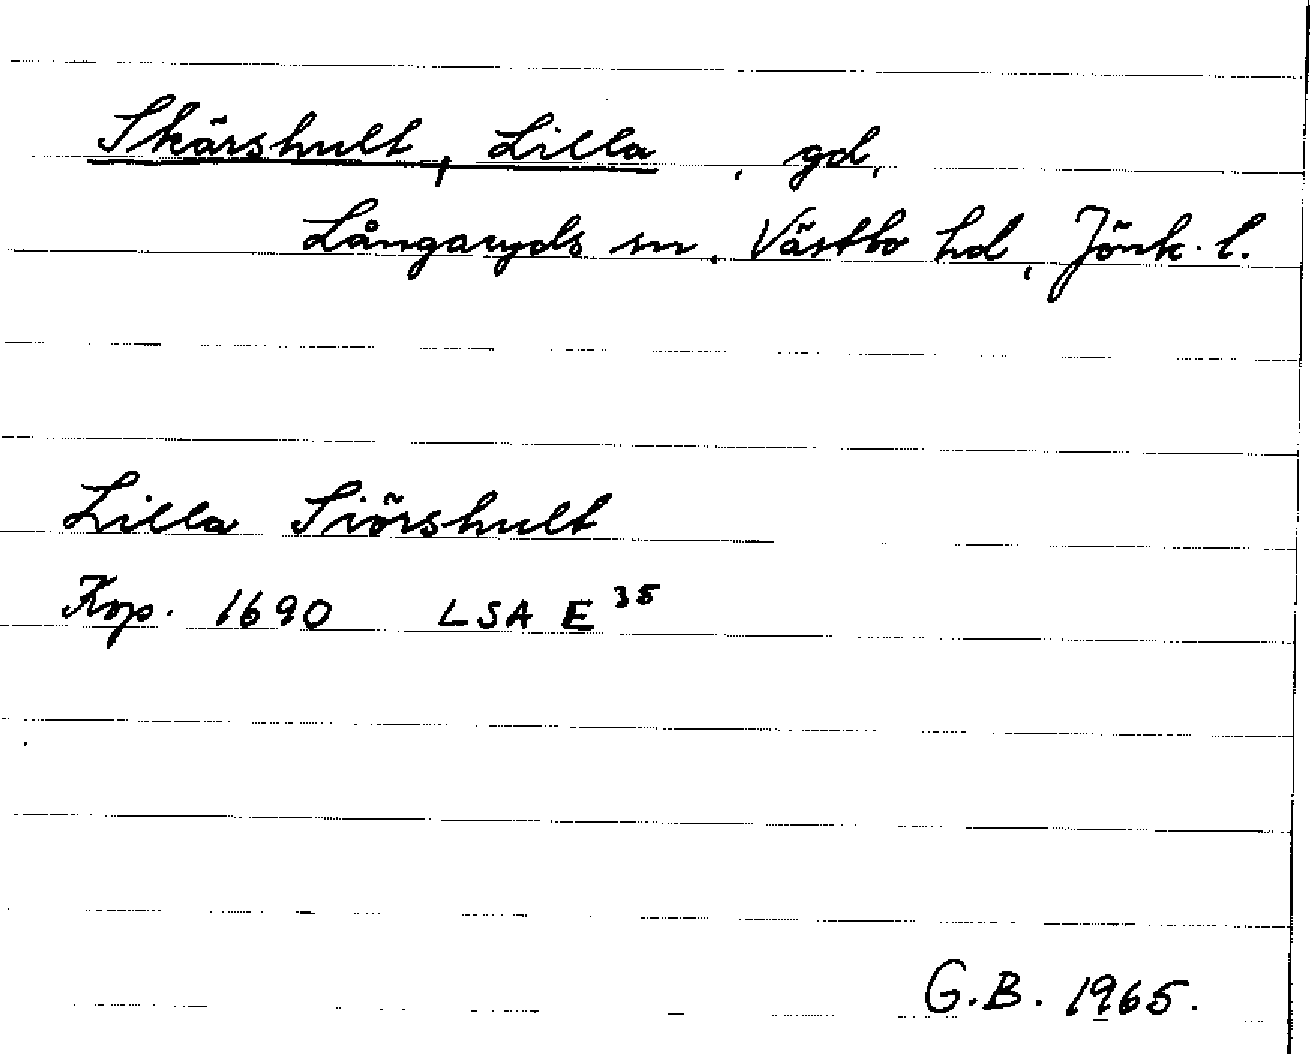 Skärshult, Lilla, gd,
Långaryds sn, Västbo hd, Jönk. l.
Lilla Siörshult
Kop. 1690 LSA E 35
G.B. 1965.